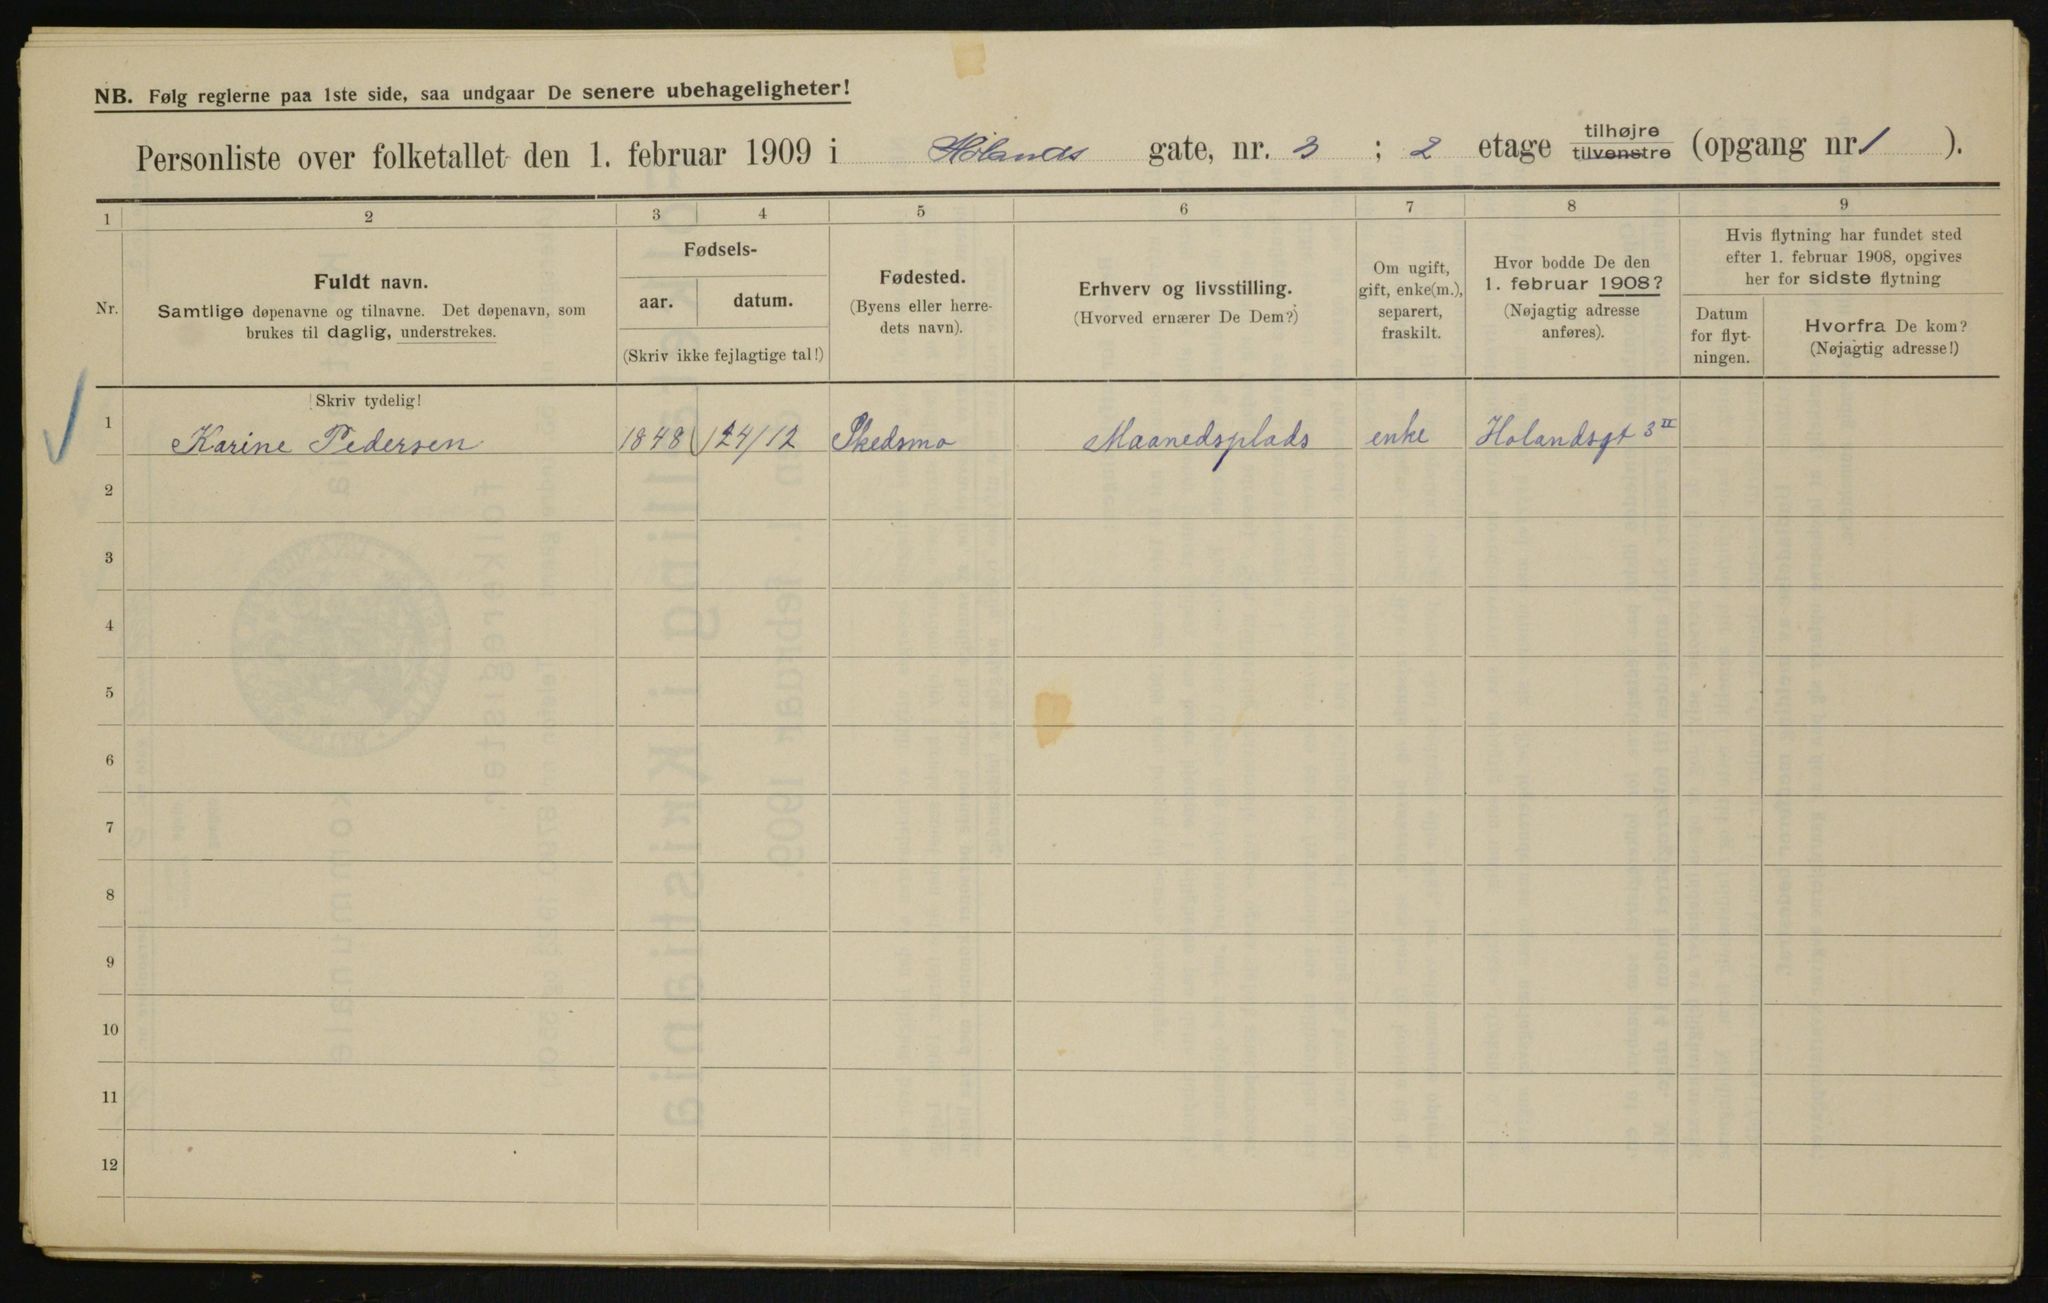 NB. Følg reglerne paa 1ste side, saa undgaar De senere ubehageligheter!
Personliste over folketallet den 1. februar 1909 i Hølands gate, nr. 3 ; 2 etage tilhøjre tilvenstre (opgang nr. 1 ).
1 2 3 4 5 6 7 8 9
Nr.
Fuldt navn.
Samtlige døpenavne og tilnavne. Det døpenavn, som
brukes til daglig, understrekes.
Fødsels-
aar. datum.
(Skriv ikke fejlagtige tal!)
Fødested.
(Byens eller herre-
dets navn).
Erhverv og livsstilling.
(Hvorved ernærer De Dem?)
Om ugift,
gift, enke(m.),
separert,
fraskilt.
Hvor bodde De den
1. februar 1908?
(Nøjagtig adresse
anføres).
Hvis flytning har fundet sted
efter 1. februar 1908, opgives
her for sidste flytning
Datum
for flyt-
ningen.
Hvorfra De kom?
(Nøjagtig adresse!)
! Skriv tydelig!
1 Karine Pedersen 1848 24/12 Skedsmo Maanedsplads enke Holandsgt 3 II
2
3
4
5
6
7
8
9
10
11
12